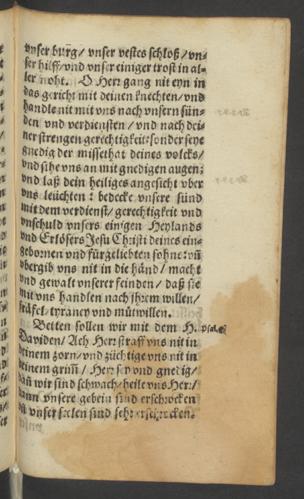 vnser burg/ vnser vestes schloß/ vn-
ser hilff/ vnd vnser einiger trost in al-
ler noht. O Herr gang nit eyn in
das gericht mit deinen knechten/ vnd
handle nit mit vns nach vnsern sün-
den vnd verdiensten/ vnd nach dei-
ner strengen gerechtigkeit: sonder seye
gnedig der missethat deines volcks/
vnd sihe vns an mit gnedigen augen:
vnd laß dein heiliges angesicht vber
vns leüchten: bedecke vnsere sünd
mit dem verdienst/ gerechtigkeit vnd
vnschuld vnsers einigen Heylands
vnd Erlösers Jesu Christi deines ein-
gebornen vnd fürgeliebten sohns: vñ
vbergib vns nit in die händ/ macht
vnd gewalt vnserer feinden/ daß sie
mit vns handlen nach ihrem willen/
fräfel/ tyranney vnd mütwillen.
Betten sollen wir mit dem H.
Dauiden/ Ach Herr straff vns nit in
deinem zorn/ vnd züchtige vns nit in
deinem grim̃/ Herr sey vnd gnedig/
dañ wir sind schwach/ heile vns Herr/
dann vnsere gebein sind erschrocken
vñ vnser seelen sind sehr erschrocken.